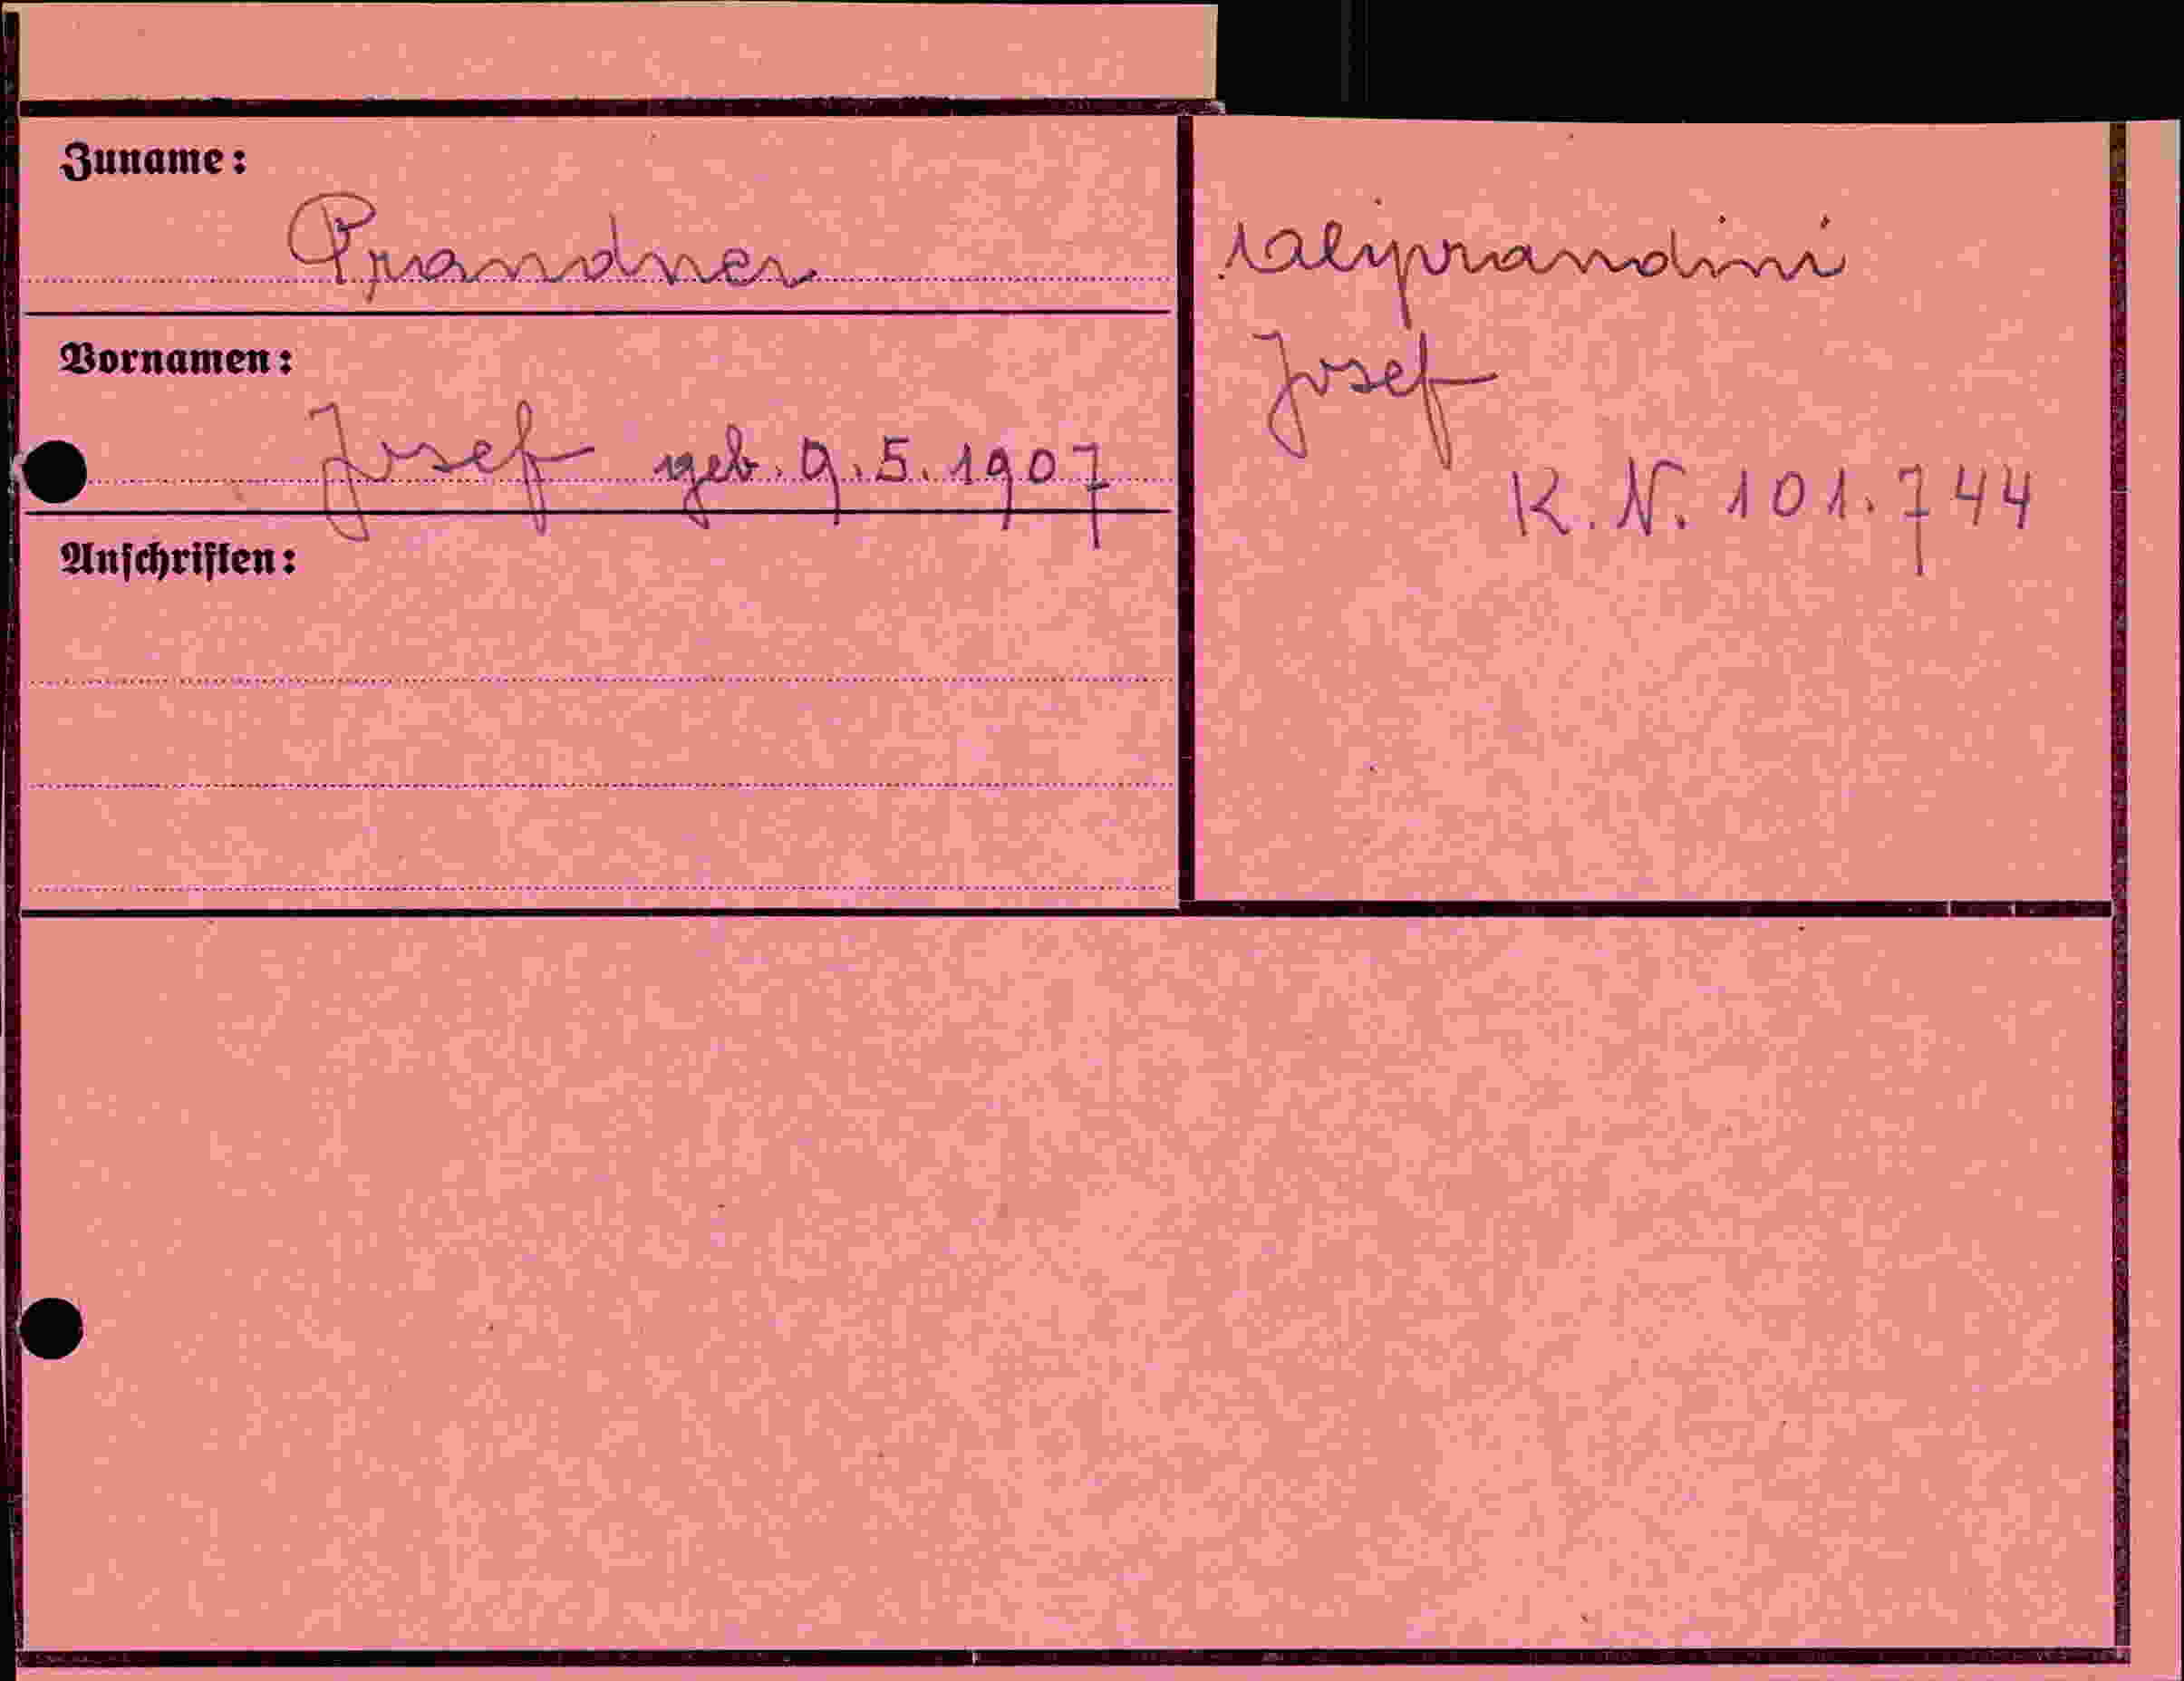 Zuname:
Prandner
Vornamen:
Josef geb. 9.5.1907
Anschriften:
Aliprandini
Josef
K. N. 101.744